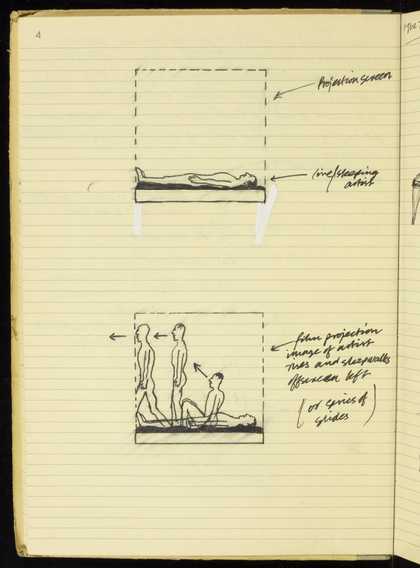 4
Projection screen
live/sleeping
artist
film projection
image of artist
rises and sleepwalks
offscreen left
(or series of
slides)